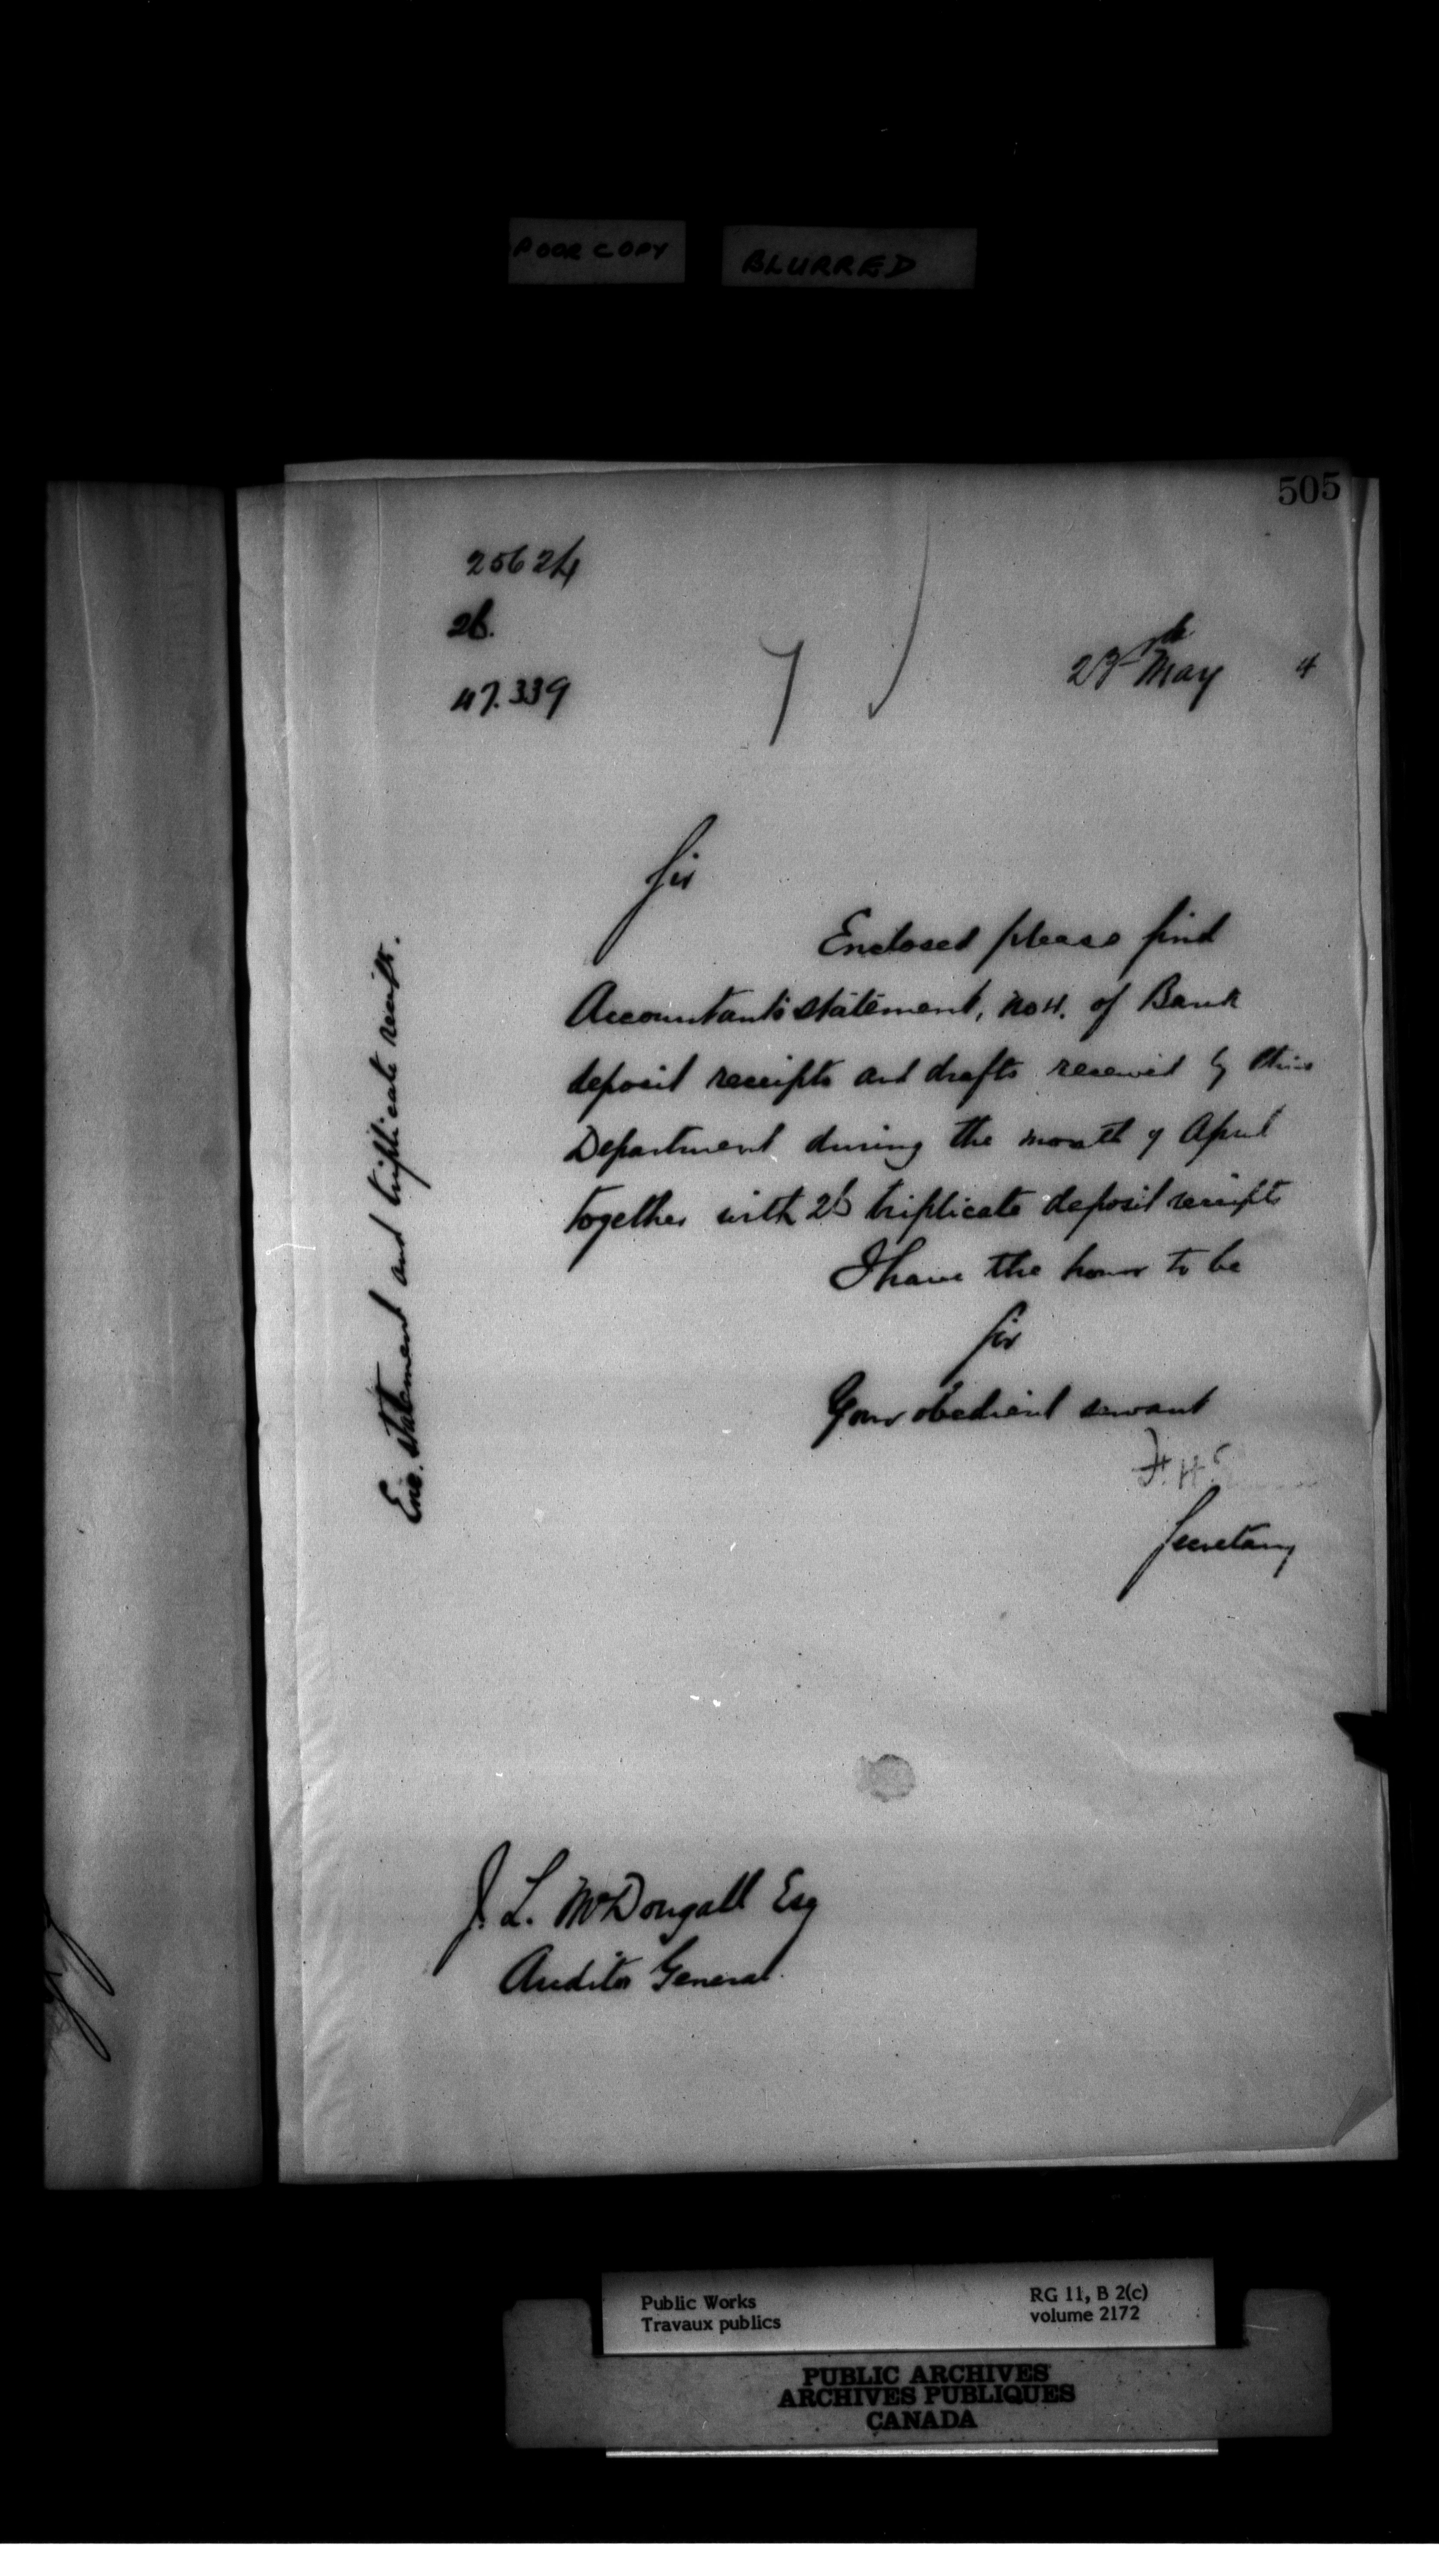 POOR COPY
BLURRED
505
25624
26.
47.339
28th May 4
Sir
Enclosed please find
Accountant's statement, No 4. of Bank
deposit receipts and drafts received by this
Department during the month of April
together with 26 triplicate deposit receipts
I have the honor to be
Sir
Your obedient servant
F. H.
Secretary
Enc. Statement and triplicate receipts.
J. L. McDougall Esq
Auditor General.
Public Works
Travaux publics
RG 11, B 2(c)
volume 2172
PUBLIC ARCHIVES
ARCHIVES PUBLIQUES
CANADA